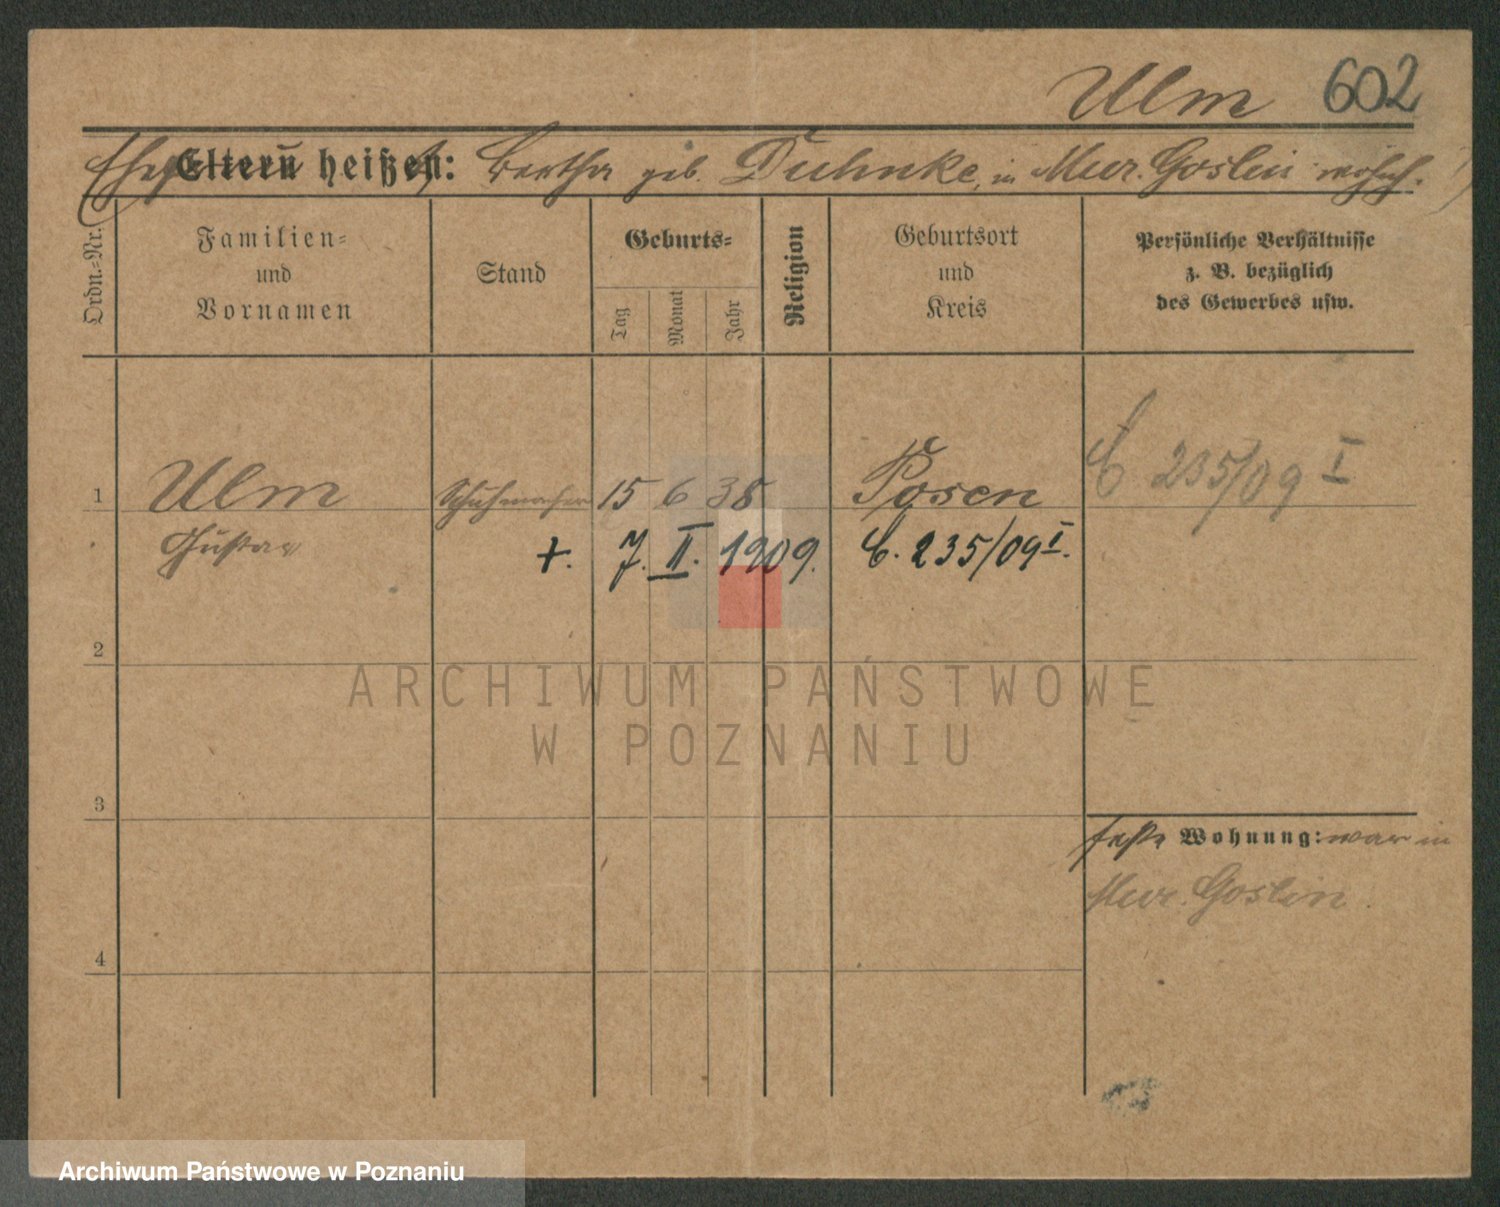 Ulm 602
Eltern heißen: Bertha geb. Duhnke, in Mur. Goslin wohnh.
Ordn.=Nr.
Familien=
und
Vornamen
Stand
Geburts=
Tag
Monat
Jahr
Religion
Geburtsort
und
Kreis
Persönliche Verhältnisse
z. B. bezüglich
des Gewerbes usw.
1 Ulm Schuhmacher 15 6 38 Posen C 235/09 I
Gustav +. 7. II. 1909. C. 235/09 I.
2
3
feste Wohnung: war in
Mur. Goslin.
4
ARCHIWUM PAŃSTWOWE
W POZNANIU
Archiwum Państwowe w Poznaniu